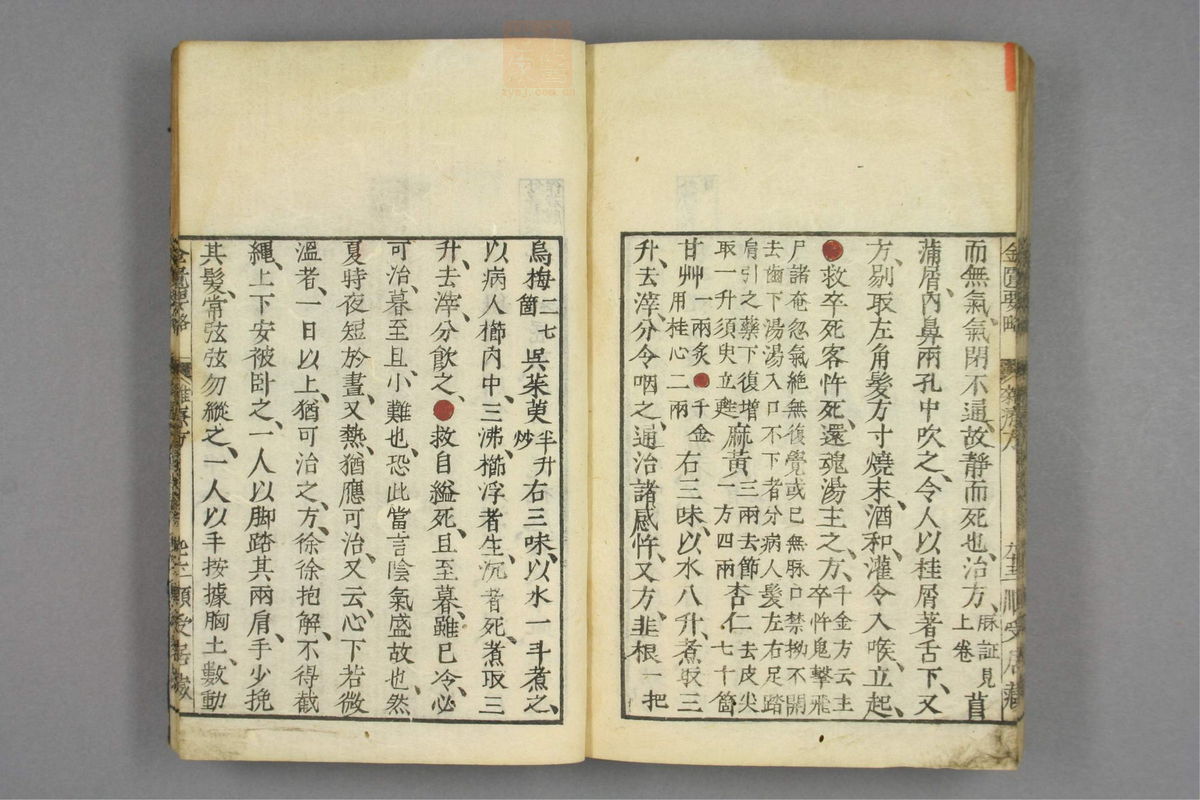 而無氣氣閉不通、故靜而死也、治方、脉証見上卷菖
蒲屑、內鼻兩孔中吹之、令人以桂屑著舌下、又
方、剔取左角髮方寸燒末、酒和、灌令入喉、立起、
救卒死客忤死、還魂湯主之、方、千金方云主卒忤鬼擊飛
尸諸奄忽氣絶無復覺或已無脉口禁拗不開
去齒下湯湯入口不下者分病人髮左右足踏
肩引之藥下復增取一升須臾立甦
麻黃三兩去節一方四兩杏仁去皮尖七十箇
甘艸一兩炙千金用桂心二兩右三味、以水八升、煮取三
升、去滓、分令咽之、通治諸感忤、又方、韭根一把
烏梅二七箇吳茱萸半升炒右三味、以水一斗煮之、
以病人櫛內中、三沸、櫛浮者生、沉者死、煮取三
升、去滓、分飲之、救自縊死、旦至暮、雖已冷、必
可治、暮至旦、小難也、恐此當言陰氣盛故也、然
夏時夜短於晝、又熱、猶應可治、又云、心下若微
溫者、一日以上、猶可治之、方、徐徐抱解、不得截
繩、上下安被卧之、一人以脚踏其兩肩、手少挽
其髮、常弦弦勿縱之、一人以手按據胸上、數動